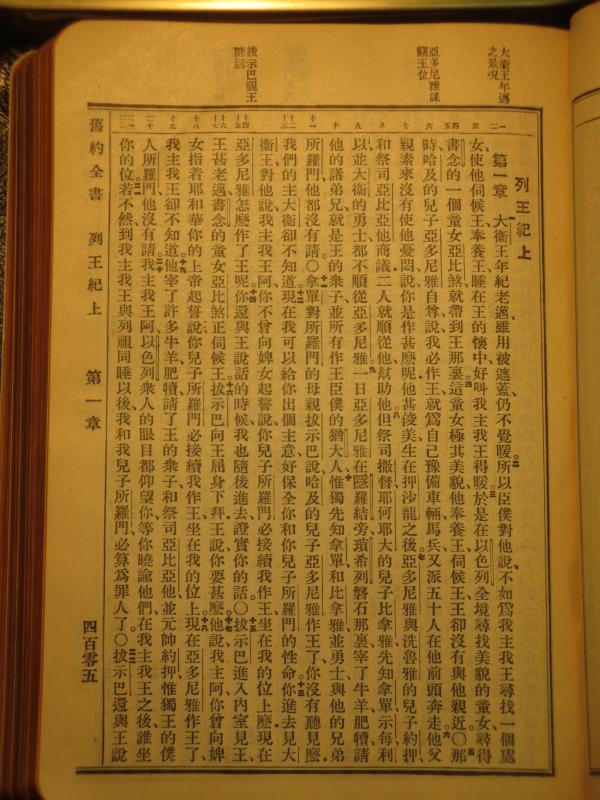 大衞王年邁
之景况
亞多尼雅謀
竊王位
拔示巴觐王
陳訴
列王紀上
第一章 大衞王年紀老邁雖用被遮蓋仍不覺暖所以臣僕對他說不如爲我主我王尋找一個處
女使他伺候王奉養王睡在王的懷中好叫我主我王得暖於是在以色列全境尋找美貌的童女尋得
書念的一個童女亞比煞就帶到王那裏這童女極其美貌他奉養王伺候王王卻沒有與他親近〇那
時哈及的兒子亞多尼雅自尊說我必作王就爲自己豫備車輛馬兵又派五十人在他前頭奔走他父
親素來沒有使他憂悶說你是作甚麼呢他甚俊美生在押沙龍之後亞多尼雅與洗魯雅的兒子約押
和祭司亞比亞他商議二人就順從他幫助他但祭司撒督耶何耶大的兒子比拿雅先知拿單示每利
以並大衞的勇士都不順從亞多尼雅一日亞多尼雅在隱羅結旁瑣希列磐石那裏宰了牛羊肥犢請
他的諸弟兄就是王的衆子並所有作王臣僕的猶大人惟獨先知拿單和比拿雅並勇士與他的兄弟
所羅門他都沒有請〇拿單對所羅門的母親拔示巴說哈及的兒子亞多尼雅作王了你沒有聽見麼
我們的主大衞卻不知道現在我可以給你出個主意好保全你和你兒子所羅門的性命你進去見大
衞王對他說我主我王阿你不曾向婢女起誓說你兒子所羅門必接續我作王坐在我的位上麼現在
亞多尼雅怎麼作了王呢你還與王說話的時候我也隨後進去證實你的話〇拔示巴進入內室見王
王甚老邁書念的童女亞比煞正伺候王拔示巴向王屈身下拜王說你要甚麼他說我主阿你曾向婢
女指着耶和華你的上帝起誓說你兒子所羅門必接續我作王坐在我的位上現在亞多尼雅作王了
我主我王卻不知道他宰了許多牛羊肥犢請了王的衆子和祭司亞比亞他並元帥約押惟獨王的僕
人所羅門他沒有請我主我王阿以色列衆人的眼目都仰望你等你曉諭他們在我主我王之後誰坐
你的位若不然到我主我王與列祖同睡以後我和我兒子所羅門必算爲罪人了〇拔示巴還與王說
舊約全書 列王紀上 第一章 四百零五